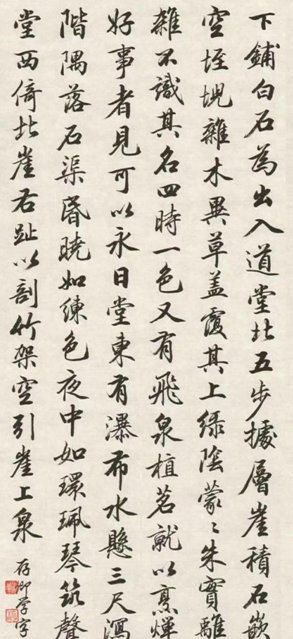 下鋪白石為出入道堂北五步據層崖積石嵌
空垤堄雜木異草蓋覆其上綠陰蒙〻朱實離
離不識其名四時一色又有飛泉植茗就以烹燀
好事者見可以永日堂東有瀑布水懸三尺瀉
階隅落石渠昏曉如練色夜中如環珮琴筑聲
堂西倚北崖右趾以剖竹架空引崖上泉
存卿學字